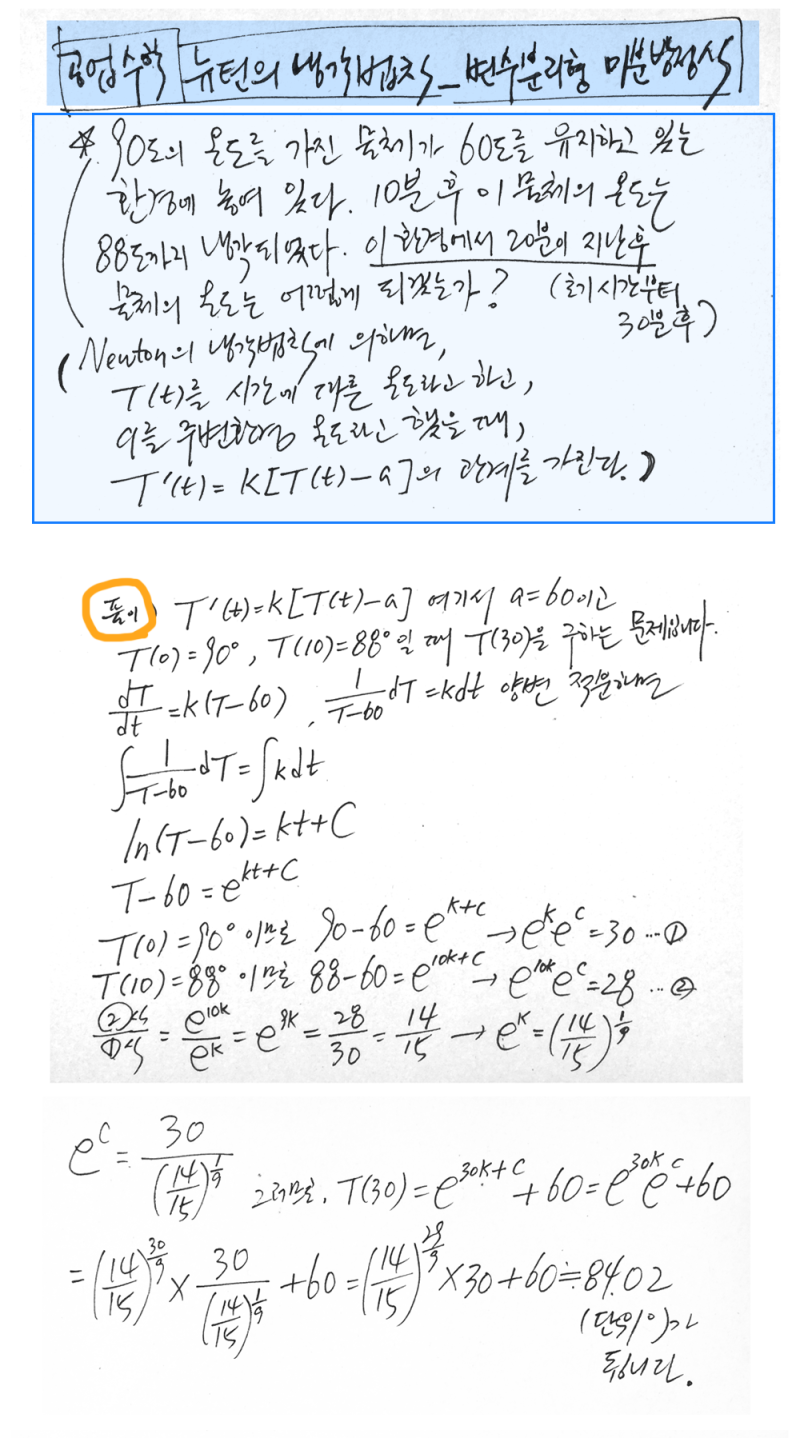 공업수학 뉴턴의 냉각법칙_변수분리형 미분방정식
* 90도의 온도를 가진 물체가 60도를 유지하고 있는
환경에 놓여 있다. 10분 후 이 물체의 온도는
88도까지 냉각되었다. 이 환경에서 20분이 지난후
물체의 온도는 어떻게 되겠는가? (초기시간부터
30분후)
(Newton의 냉각법칙에 의하면,
T(t)를 시간에 따른 온도라고 하고,
a를 주변환경 온도라고 했을 때,
T'(t)=K[T(t)-a]의 관계를 가진다.)
풀이) T'(t)=k[T(t)-a] 여기서 a=60이고
T(0)=90°, T(10)=88°일 때 T(30)을 구하는 문제입니다.
dT/dt=k(T-60), 1/(T-60) dT=kdt 양변 적분하면
∫1/(T-60) dT=∫kdt
ln(T-60)=kt+C
T-60=e^(kt+C)
T(0)=90° 이므로 90-60=e^(k+C) → e^k e^C=30 … ①
T(10)=88° 이므로 88-60=e^(10k+C) → e^(10k) e^C=28 … ②
②식/①식 = e^(10k)/e^k = e^(9k) = 28/30 = 14/15 → e^k=(14/15)^(1/9)
e^C = 30/(14/15)^(1/9) 그러므로, T(30)=e^(30k+C)+60=e^(30k) e^C+60
=(14/15)^(30/9) × 30/(14/15)^(1/9) +60=(14/15)^(29/9) ×30+60≒84.02
(단위°)가
됩니다.